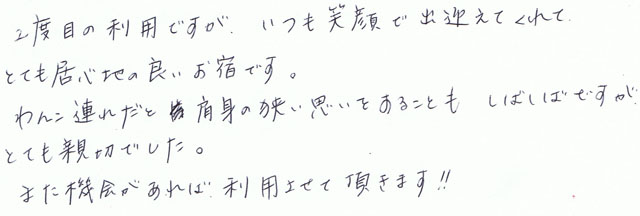 2度目の利用ですが、いつも笑顔で出迎えてくれて
とても居心地の良いお宿です。
わんこ連れだと肩身の狭い思いをあることも しばしばですが
とても親切でした。
また機会があれば利用させて頂きます!!